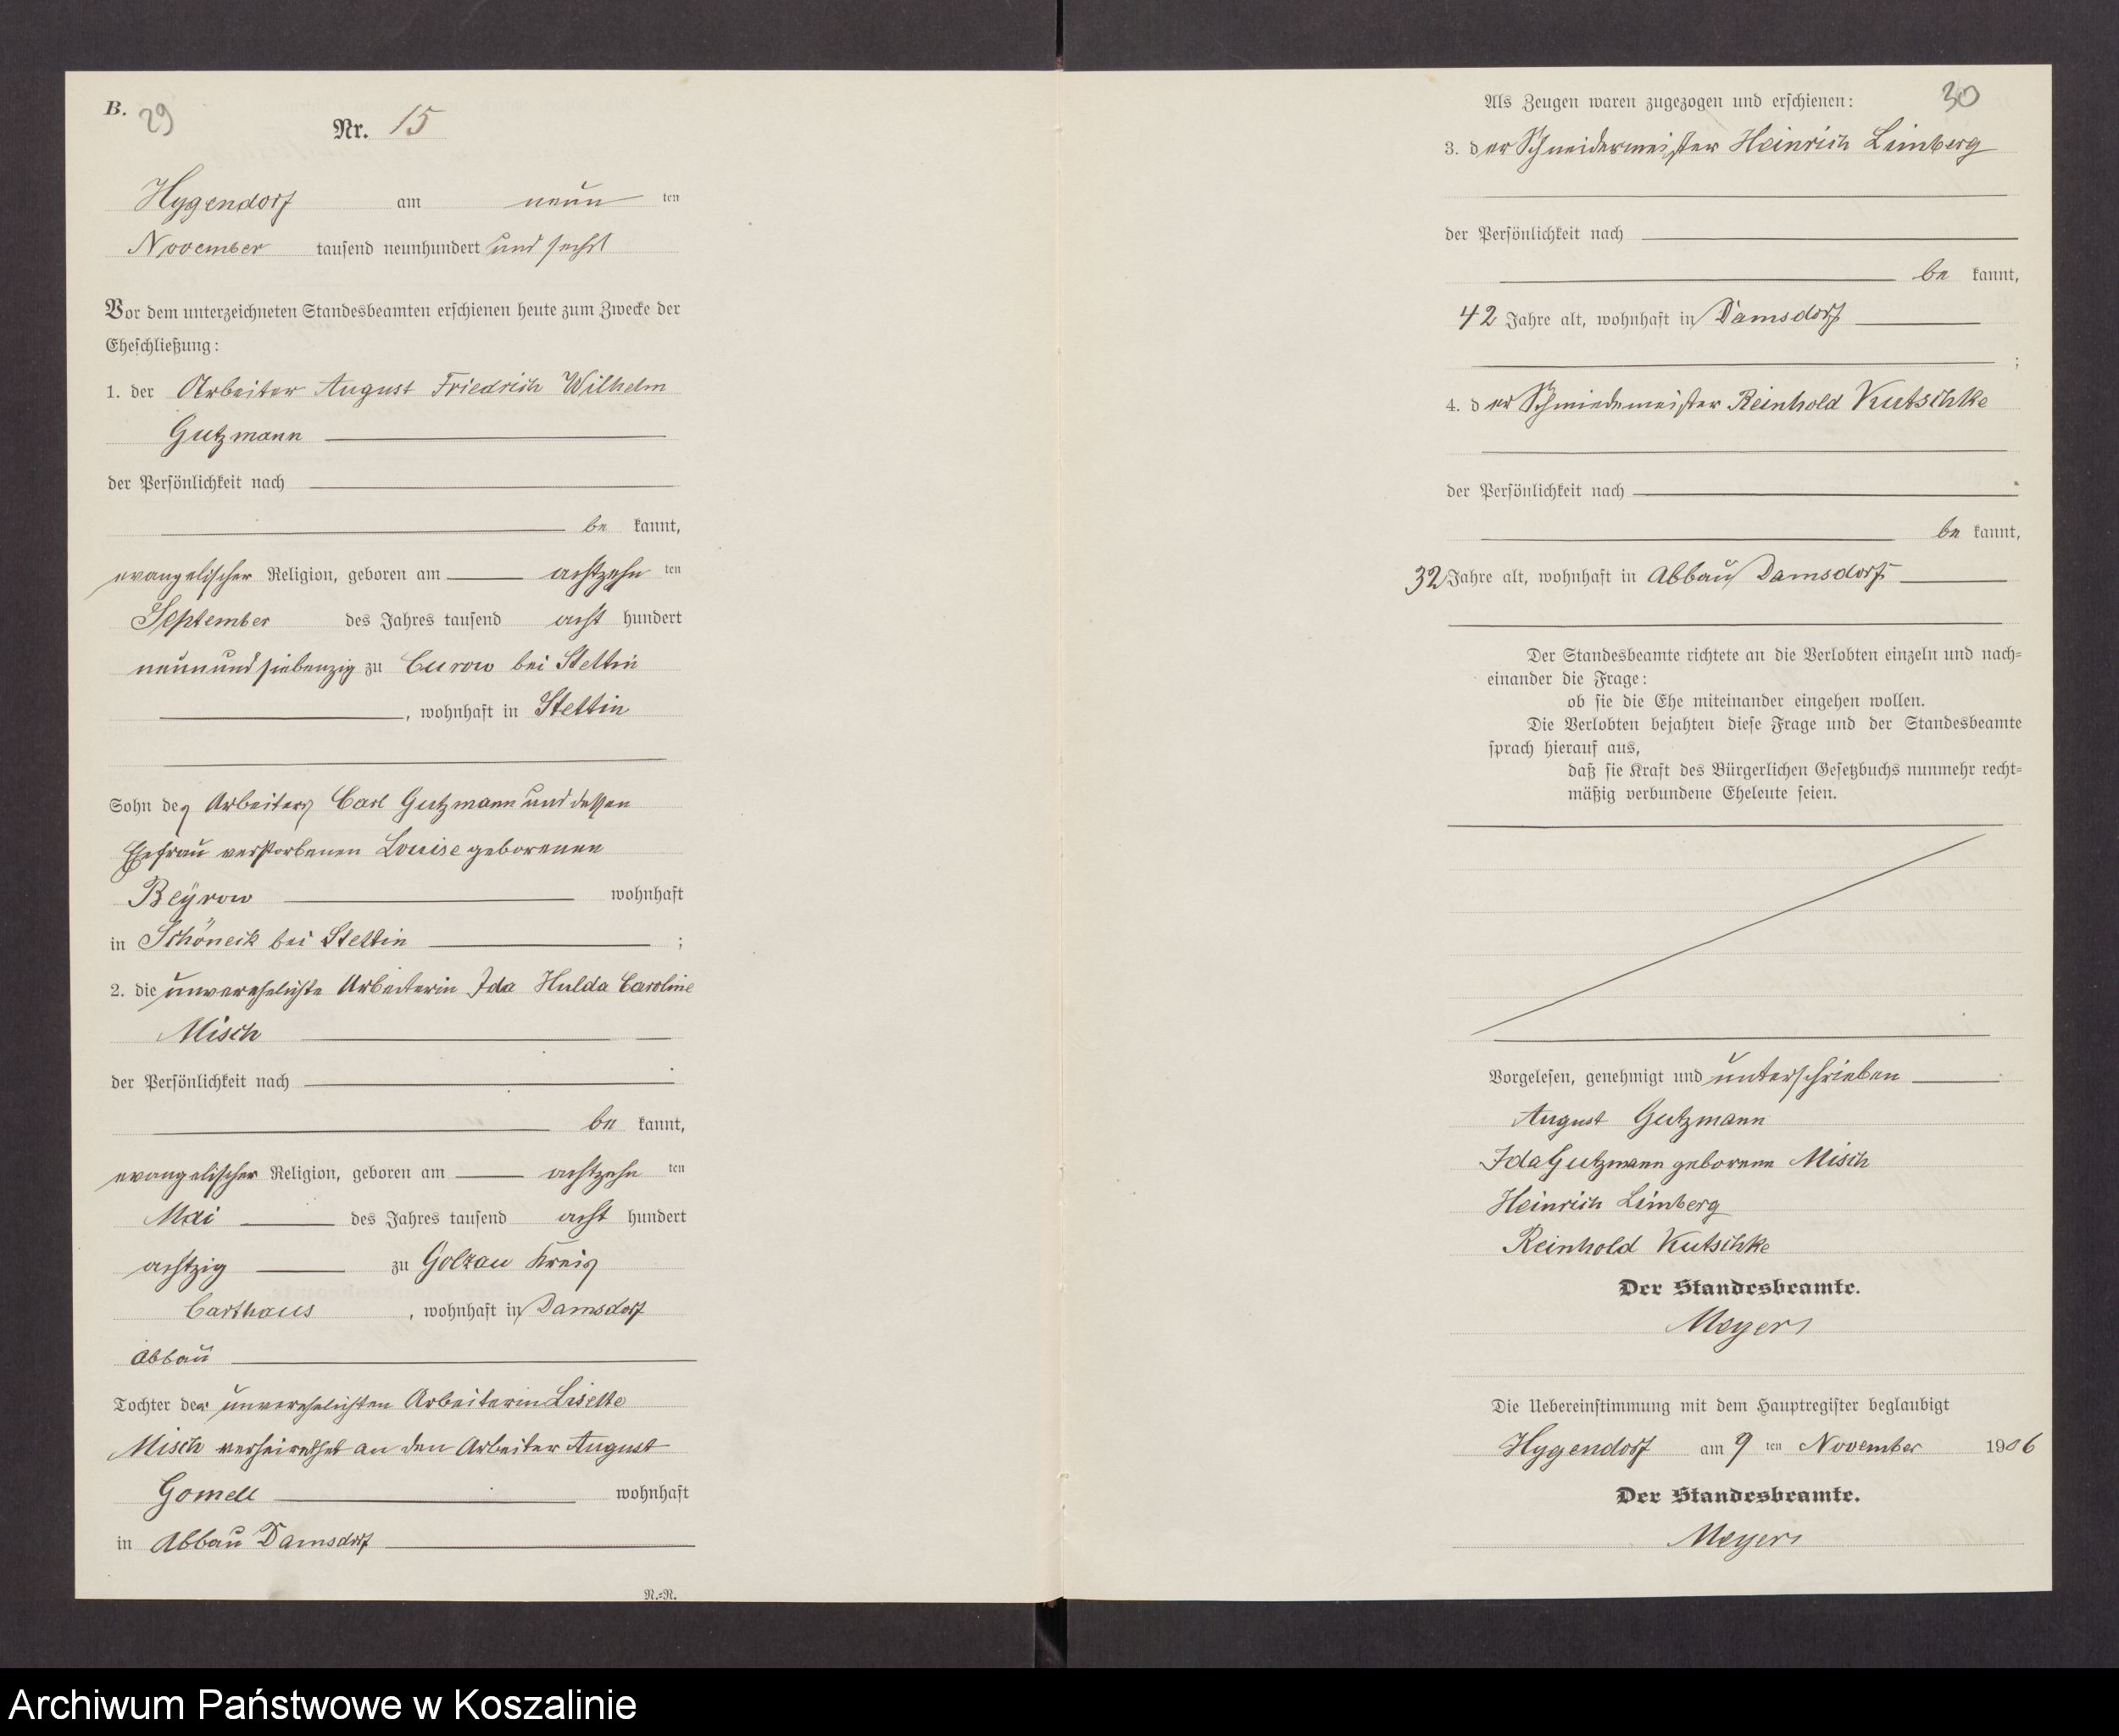 B.
29
Nr. 15
Hygendorf am neun ten
November tausend neunhundert und sechs
Vor dem unterzeichneten Standesbeamten erschienen heute zum Zwecke der
Eheschließung:
1. der Arbeiter August Friedrich Wilhelm
Gutzmann
der Persönlichkeit nach
be kannt,
evangelischer Religion, geboren am achtzehn ten
September des Jahres tausend acht hundert
neunundsiebenzig zu Curow bei Stettin
, wohnhaft in Stettin
Sohn des Arbeiters Carl Gutzmann und dessen
Ehefrau verstorbenen Louise geborenen
Beyrow wohnhaft
in Schöneck bei Stettin ;
2. die unverehelichte Arbeiterin Ida Hulda Caroline
Misch
der Persönlichkeit nach
be kannt,
evangelischer Religion, geboren am achtzehn ten
Mai des Jahres tausend acht hundert
achtzig zu Golzau Kreis
Carthaus , wohnhaft in Damsdorf
Abbau
Tochter der unverehelichten Arbeiterin Lisette
Misch verheirathet an den Arbeiter August
Gomell wohnhaft
in Abbau Damsdorf
N.=N.
30
Als Zeugen waren zugezogen und erschienen:
3. der Schneidermeister Heinrich Limberg
der Persönlichkeit nach
be kannt,
42 Jahre alt, wohnhaft in Damsdorf
;
4. der Schmiedemeister Reinhold Kutschke
der Persönlichkeit nach
be kannt,
32 Jahre alt, wohnhaft in Abbau Damsdorf
Der Standesbeamte richtete an die Verlobten einzeln und nach=
einander die Frage:
ob sie die Ehe miteinander eingehen wollen.
Die Verlobten bejahten diese Frage und der Standesbeamte
sprach hierauf aus,
daß sie Kraft des Bürgerlichen Gesetzbuchs nunmehr recht=
mäßig verbundene Eheleute seien.
Vorgelesen, genehmigt und unterschrieben
August Gutzmann
Ida Gutzmann geborene Misch
Heinrich Limberg
Reinhold Kutschke
Der Standesbeamte.
Meyer
Die Uebereinstimmung mit dem Hauptregister beglaubigt
Hygendorf am 9 ten November 1906
Der Standesbeamte.
Meyer
Archiwum Państwowe w Koszalinie